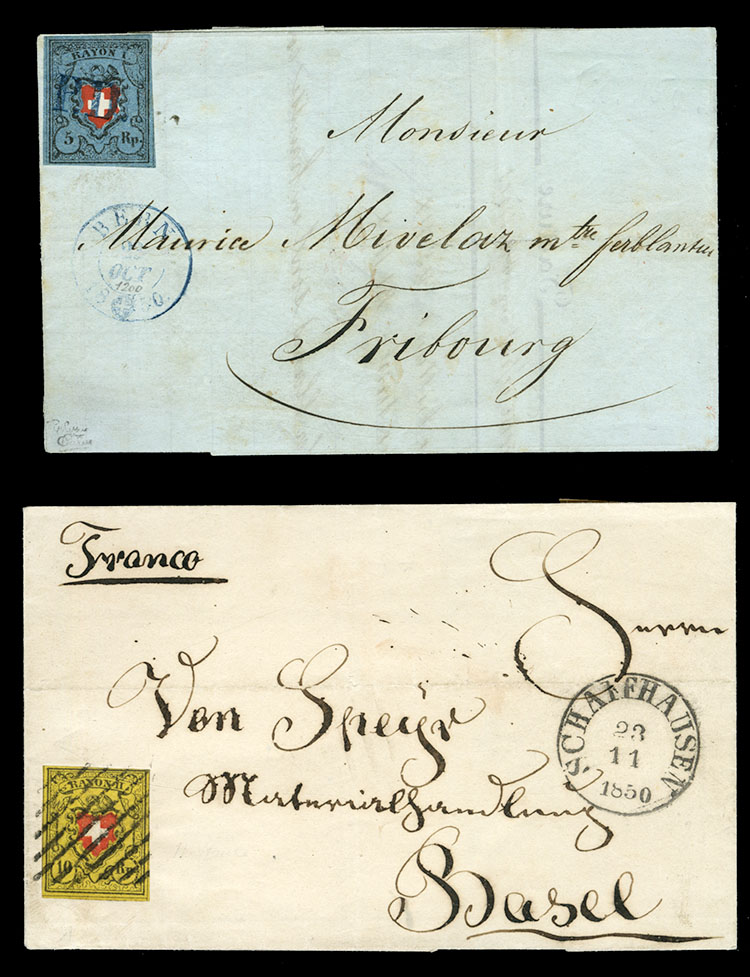 RAYON
5 Rp.
Monsieur
BERN
OCT
1200
Maurice Mivelaz mtre ferblantier
Fribourg
Franco
Herrn
SCHAFFHAUSEN
23
11
1850
Von Speyr
Materialhandlung
RAYON II
10 Rp.
Basel